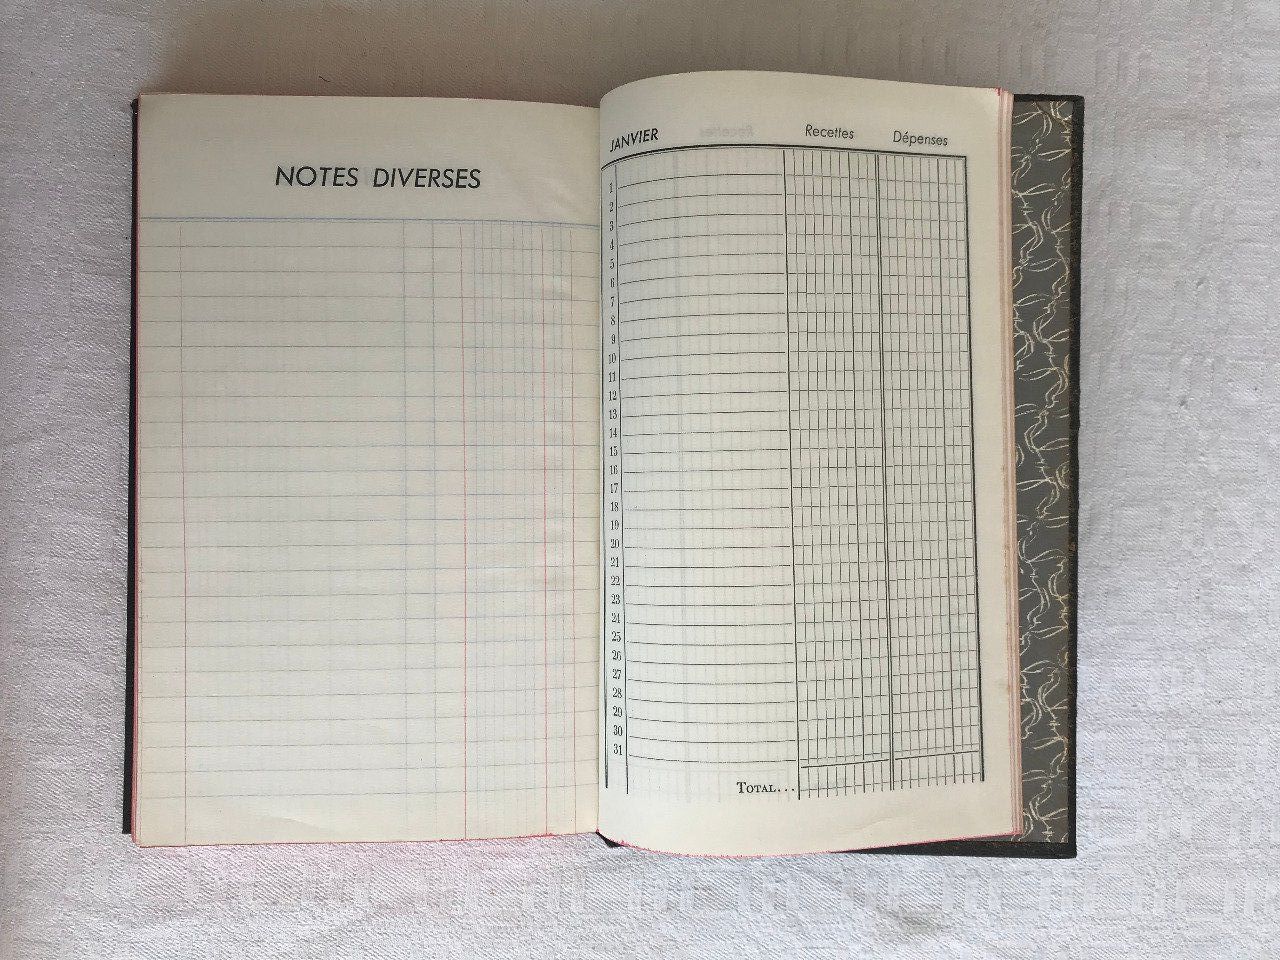 NOTES DIVERSES
JANVIER Recettes Dépenses
1
2
3
4
5
6
7
8
9
10
11
12
13
14
15
16
17
18
19
20
21
22
23
24
25
26
27
28
29
30
31
TOTAL...